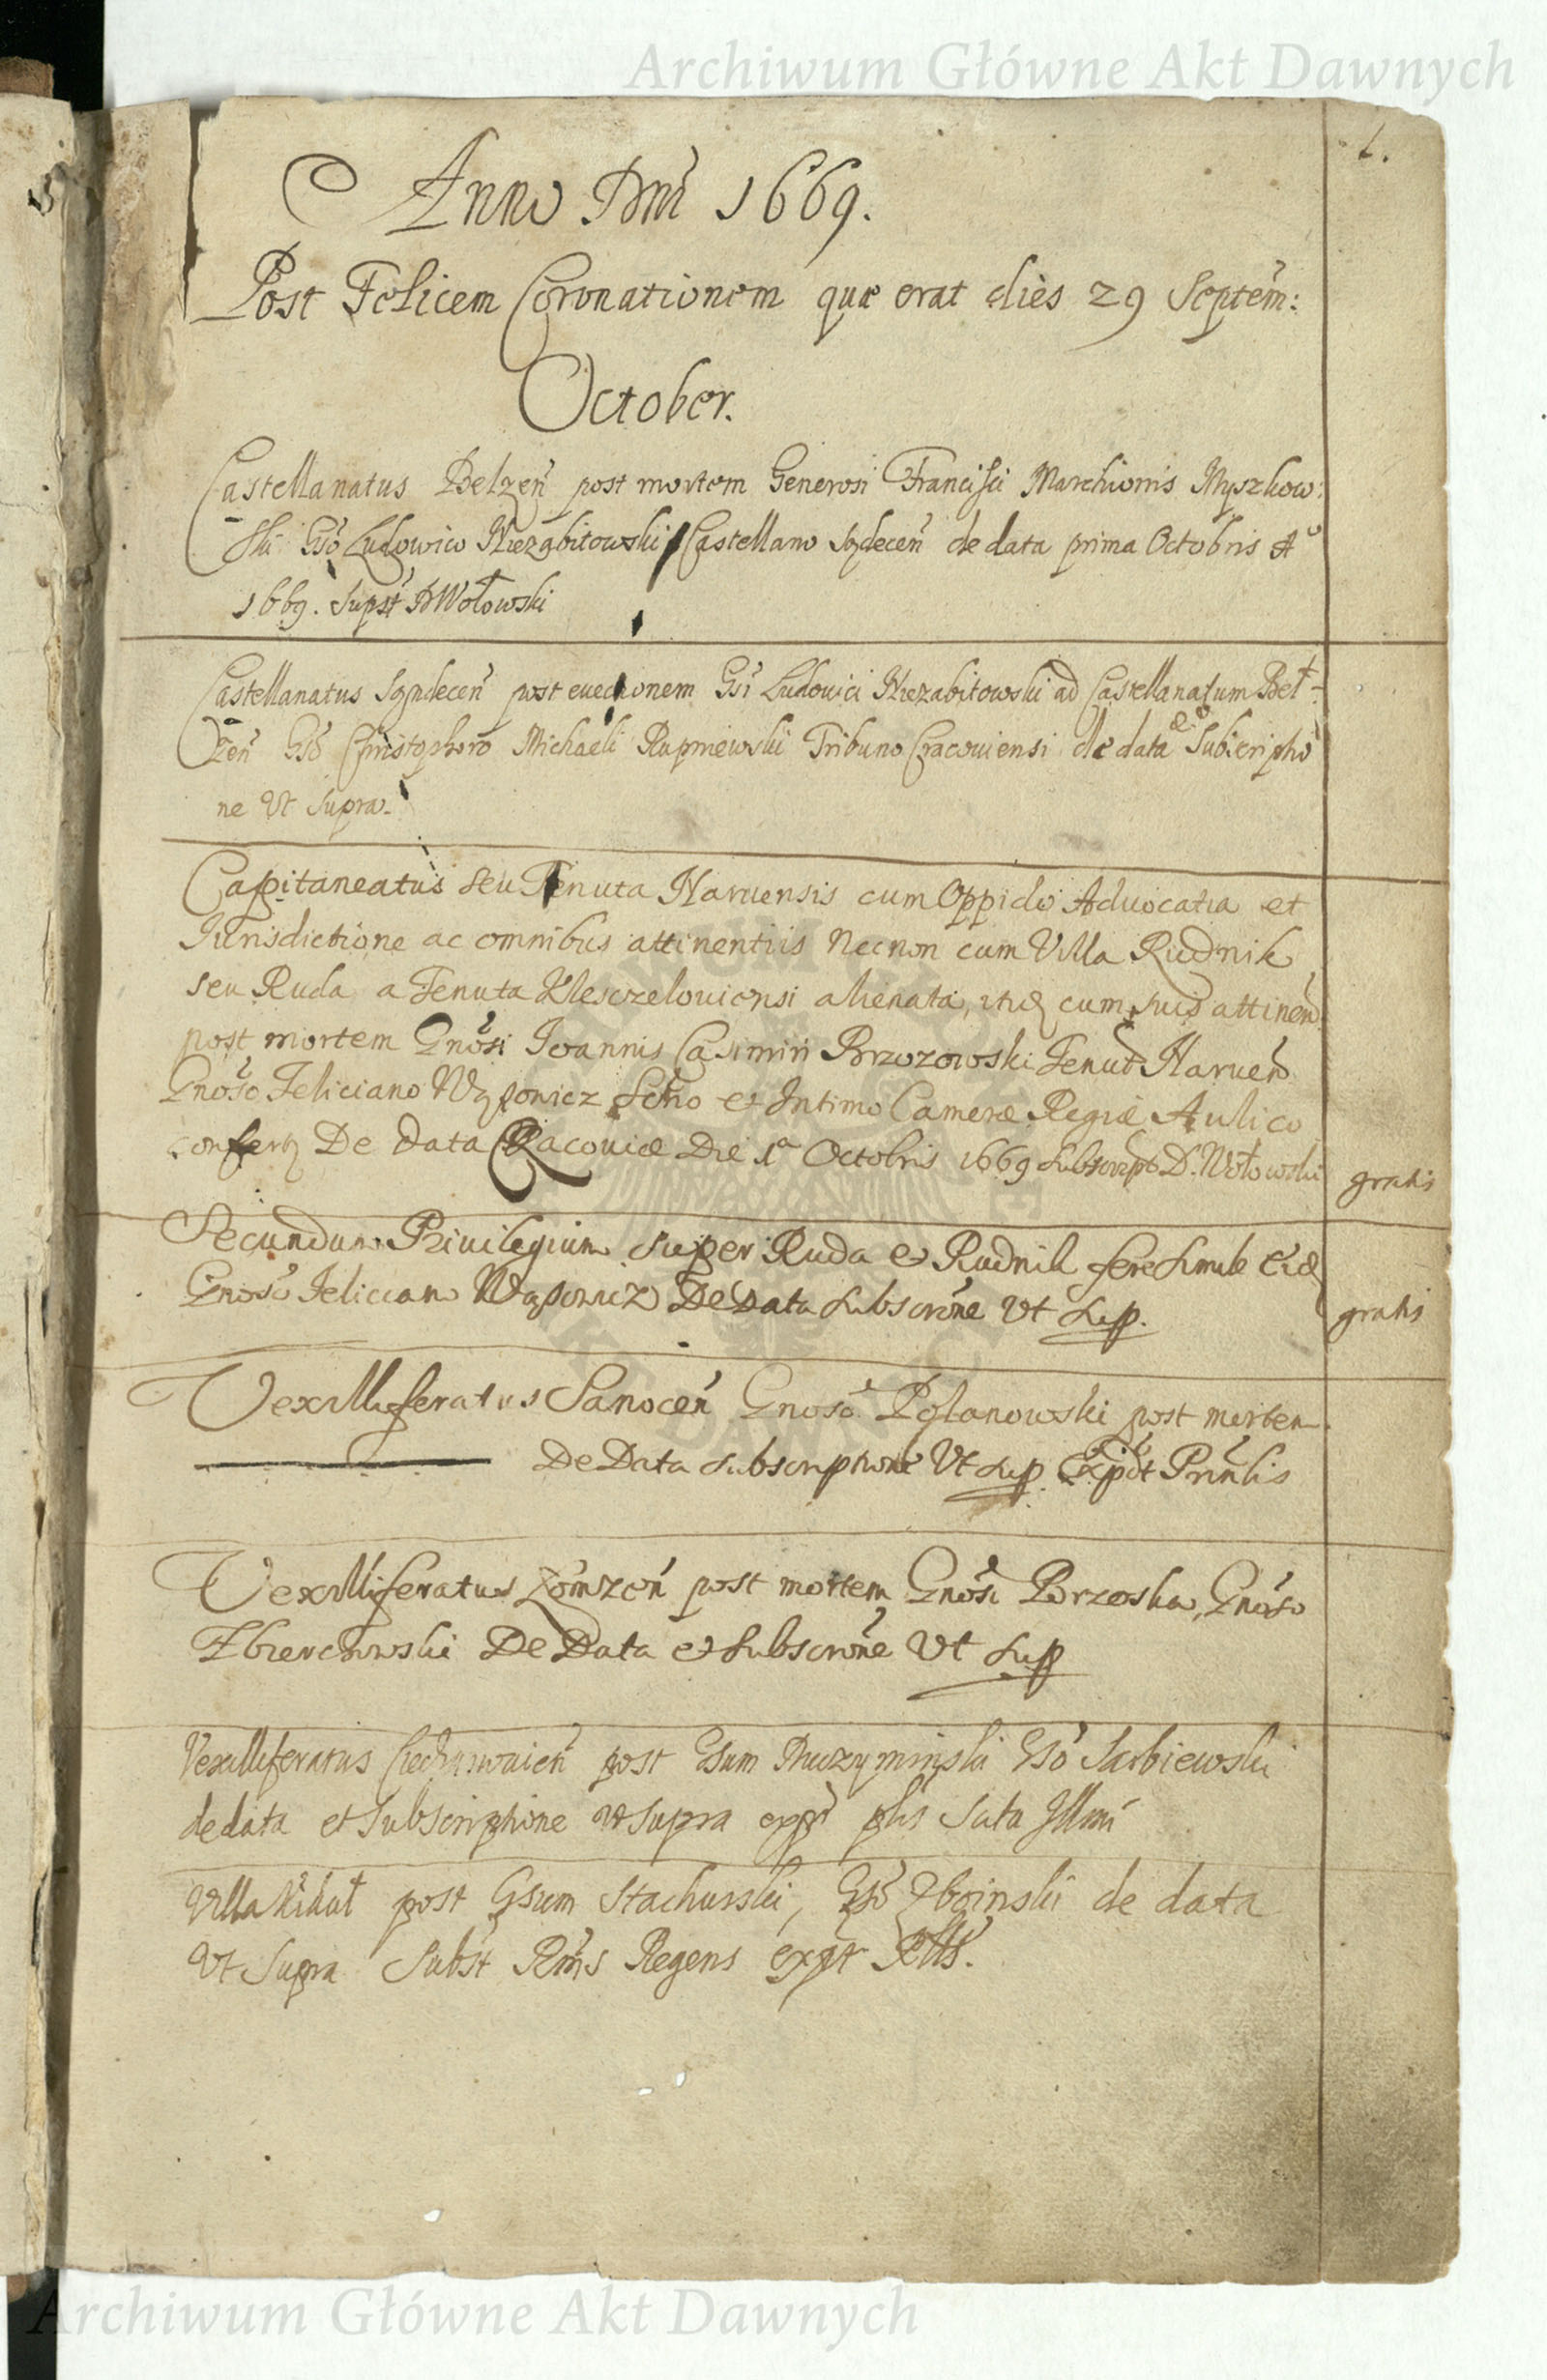 Archiwum Główne Akt Dawnych
1.
Anno Dni 1669.
Post Felicem Coronationem quæ erat dies 29 Septem:
October.
Castellanatus Belzen post mortem Generosi Francisci Marchionis Myszkow:
ski Gso Ludowico Niezabitowski Castellano Sądecen de data prima Octobris Ao
1669. Supst D Wołowski
Castellanatus Sąndecen post evectionem Gsi Ludovici Niezabitowski ad Castellanatum Bet-
zen Gso Christophoro Michaeli Rupniewski Tribuno Cracoviensi de data et Subscriptio
ne Ut Supra.
Capitaneatus seu Tenuta Naruensis cum Oppido Advocatia et
Iurisdictione ac omnibus attinentiis Necnon cum Villa Rudnik
seu Ruda a Tenuta Kleszczeloviensi alienata, cum suis attinen
post mortem Gnosi Joannis Casimiri Brzozowski Tenut Naruen
Gnoso Feliciano Wąsowicz et Intimo Cameræ Regiæ Aulico
confert De Data Cracoviæ Die 1a Octobris 1669 Subscript D. Wołowski gratis
Secundum Privilegium super Ruda et Rudnik fere simile Eid
Gnoso Felician Wąsowicz De Data Subscrone Ut Sup. gratis
Vexilliferatus Sanocen Gnoso Polanowski post mortem
De Data subscriptione Ut Sup.
Vexilliferatus Łomzen post mortem Gnosi Brzoska, Gnoso
Zbierchowski De Data et Subscrone Ut Sup
Vexilliferatus post Gsum Gso Sarbiewski
de data et Subscriptione ut supra
Villa post Gsum Stachurski, Gso Zboinski de data
Ut Supra Subst Regens
Archiwum Główne Akt Dawnych